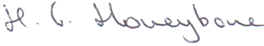 H. G. Honeybone